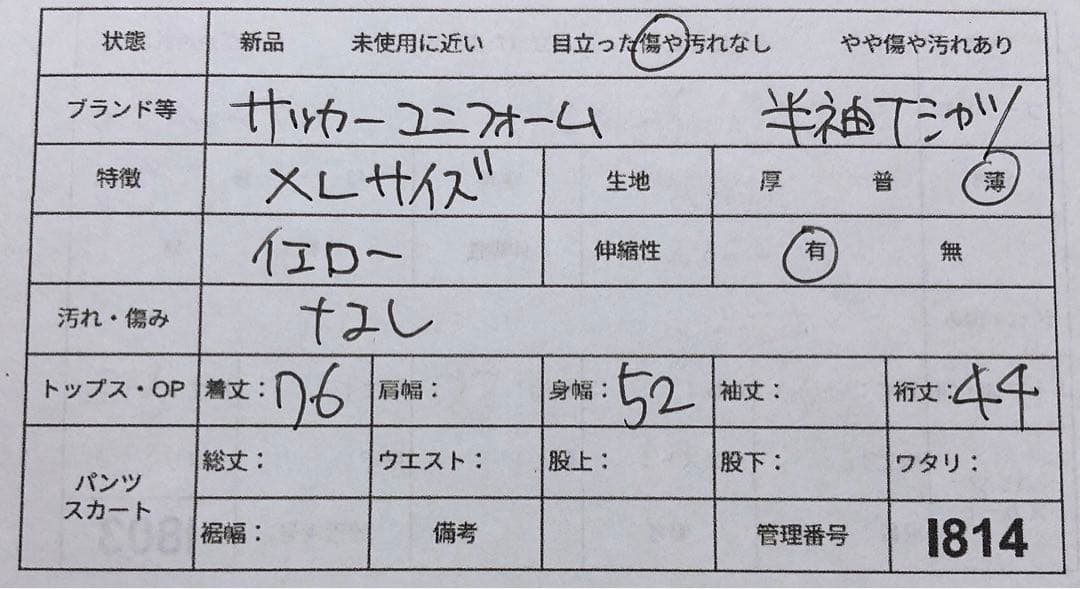 状態 新品 未使用に近い 目立った傷や汚れなし やや傷や汚れあり
ブランド等 サッカーユニフォーム 半袖Tシャツ
特徴 XLサイズ 生地 厚 普 薄
イエロー 伸縮性 有 無
汚れ・傷み なし
トップス・OP 着丈：76 肩幅： 身幅：52 袖丈： 裄丈：44
パンツ スカート
総丈： ウエスト： 股上： 股下： ワタリ：
裾幅： 備考 管理番号 I814